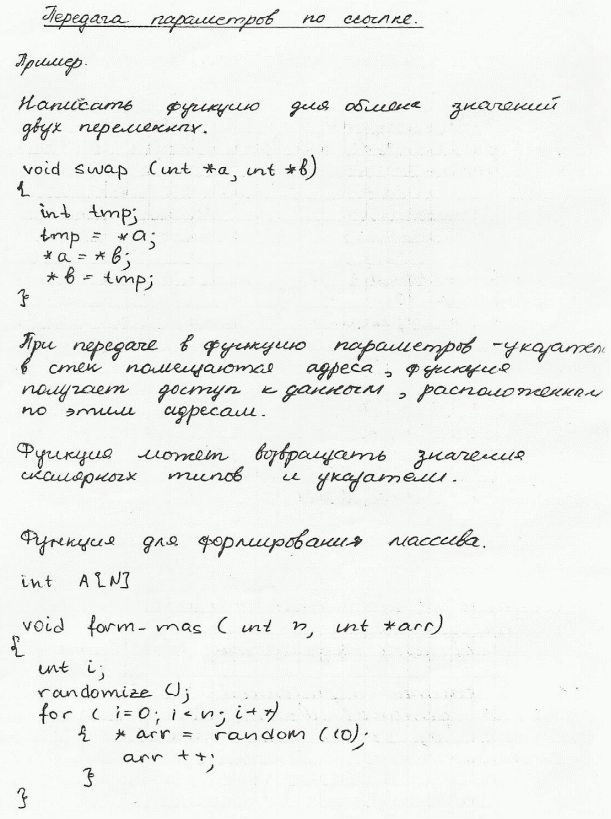 Передача параметров по ссылке.
Пример.
Написать функцию для обмена значений
двух переменных.
void swap (int *a, int *b)
{
int tmp;
tmp = *a;
*a = *b;
*b = tmp;
}
При передаче в функцию параметров - указател
в стек помещаются адреса, функция
получает доступ к данным, расположенным
по этим адресам.
Функция может возвращать значения
скалярных типов и указатели.
Функция для формирования массива.
int A[N]
void form-mas (int n, int *arr)
{
int i;
randomize ();
for (i=0; i<n; i++)
{ *arr = random (10);
arr ++;
}
}